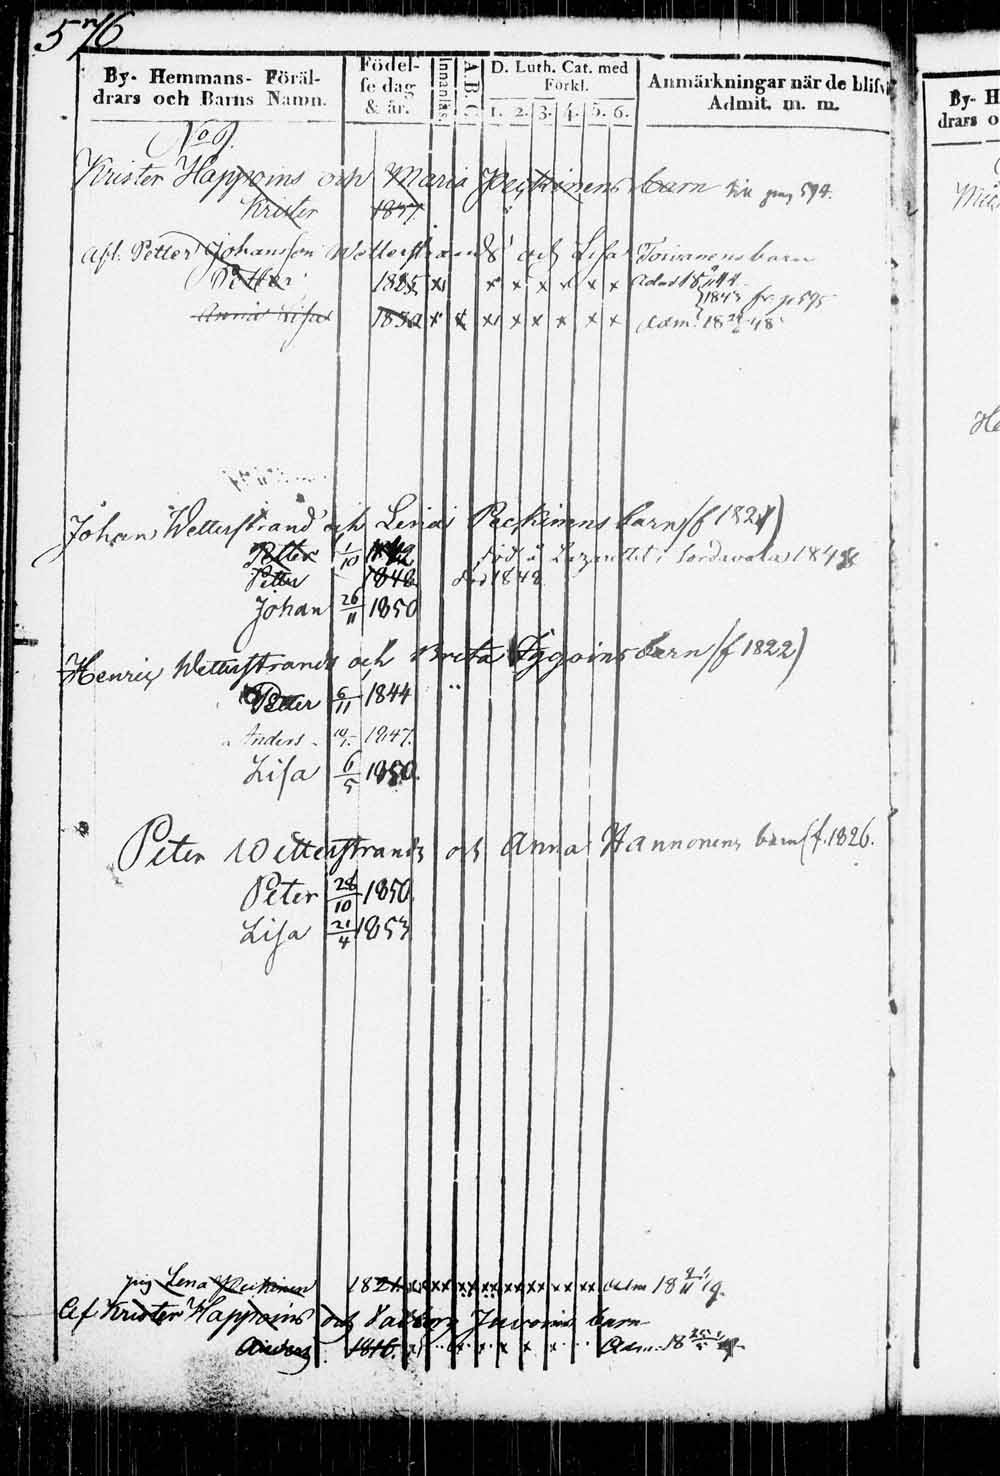 576
By- Hemmans- Föräl-
drars och Barns Namn.
Födel-
se dag
& år.
Innanläs.
A.B.C.
D. Luth. Cat. med
Förkl.
1. 2. 3. 4. 5. 6.
Anmärkningar när de blifvi
Admit. m. m.
No 9.
Krister Happoins och Maria Peckinens barn 594.
Krister 1847
Afl. Petter Johansson Wetterstrands och Lisa Toivanens barn
Petter 1825 x x x x x x x
1843 fr. p 575
Anna Lisa 1830 x x x x x x x x Adm. 18 48
Johan Wetterstrands och Lena Peckinens barn (f 1821)
Petter 1/10 född i Lazarettet i Sordavala 1848
Petter 1848 död 1848
Johan 26/11 1850
Henric Wetterstrands och Breta Iggoins barn (f 1822)
Petter 6/11 1844
Anders 1847.
Lisa 6/5 1850.
Peter Wetterstrands och Anna Hannonens barn (f. 1826.
Peter 28/10 1850
Lisa 21/4 1853
pig Lena Peckinen 1821 x x x x x x x x x x adm 18
Af Krister Happoins och Juvonens barn
Anders 1816. Adm. 18
By- H
drars o